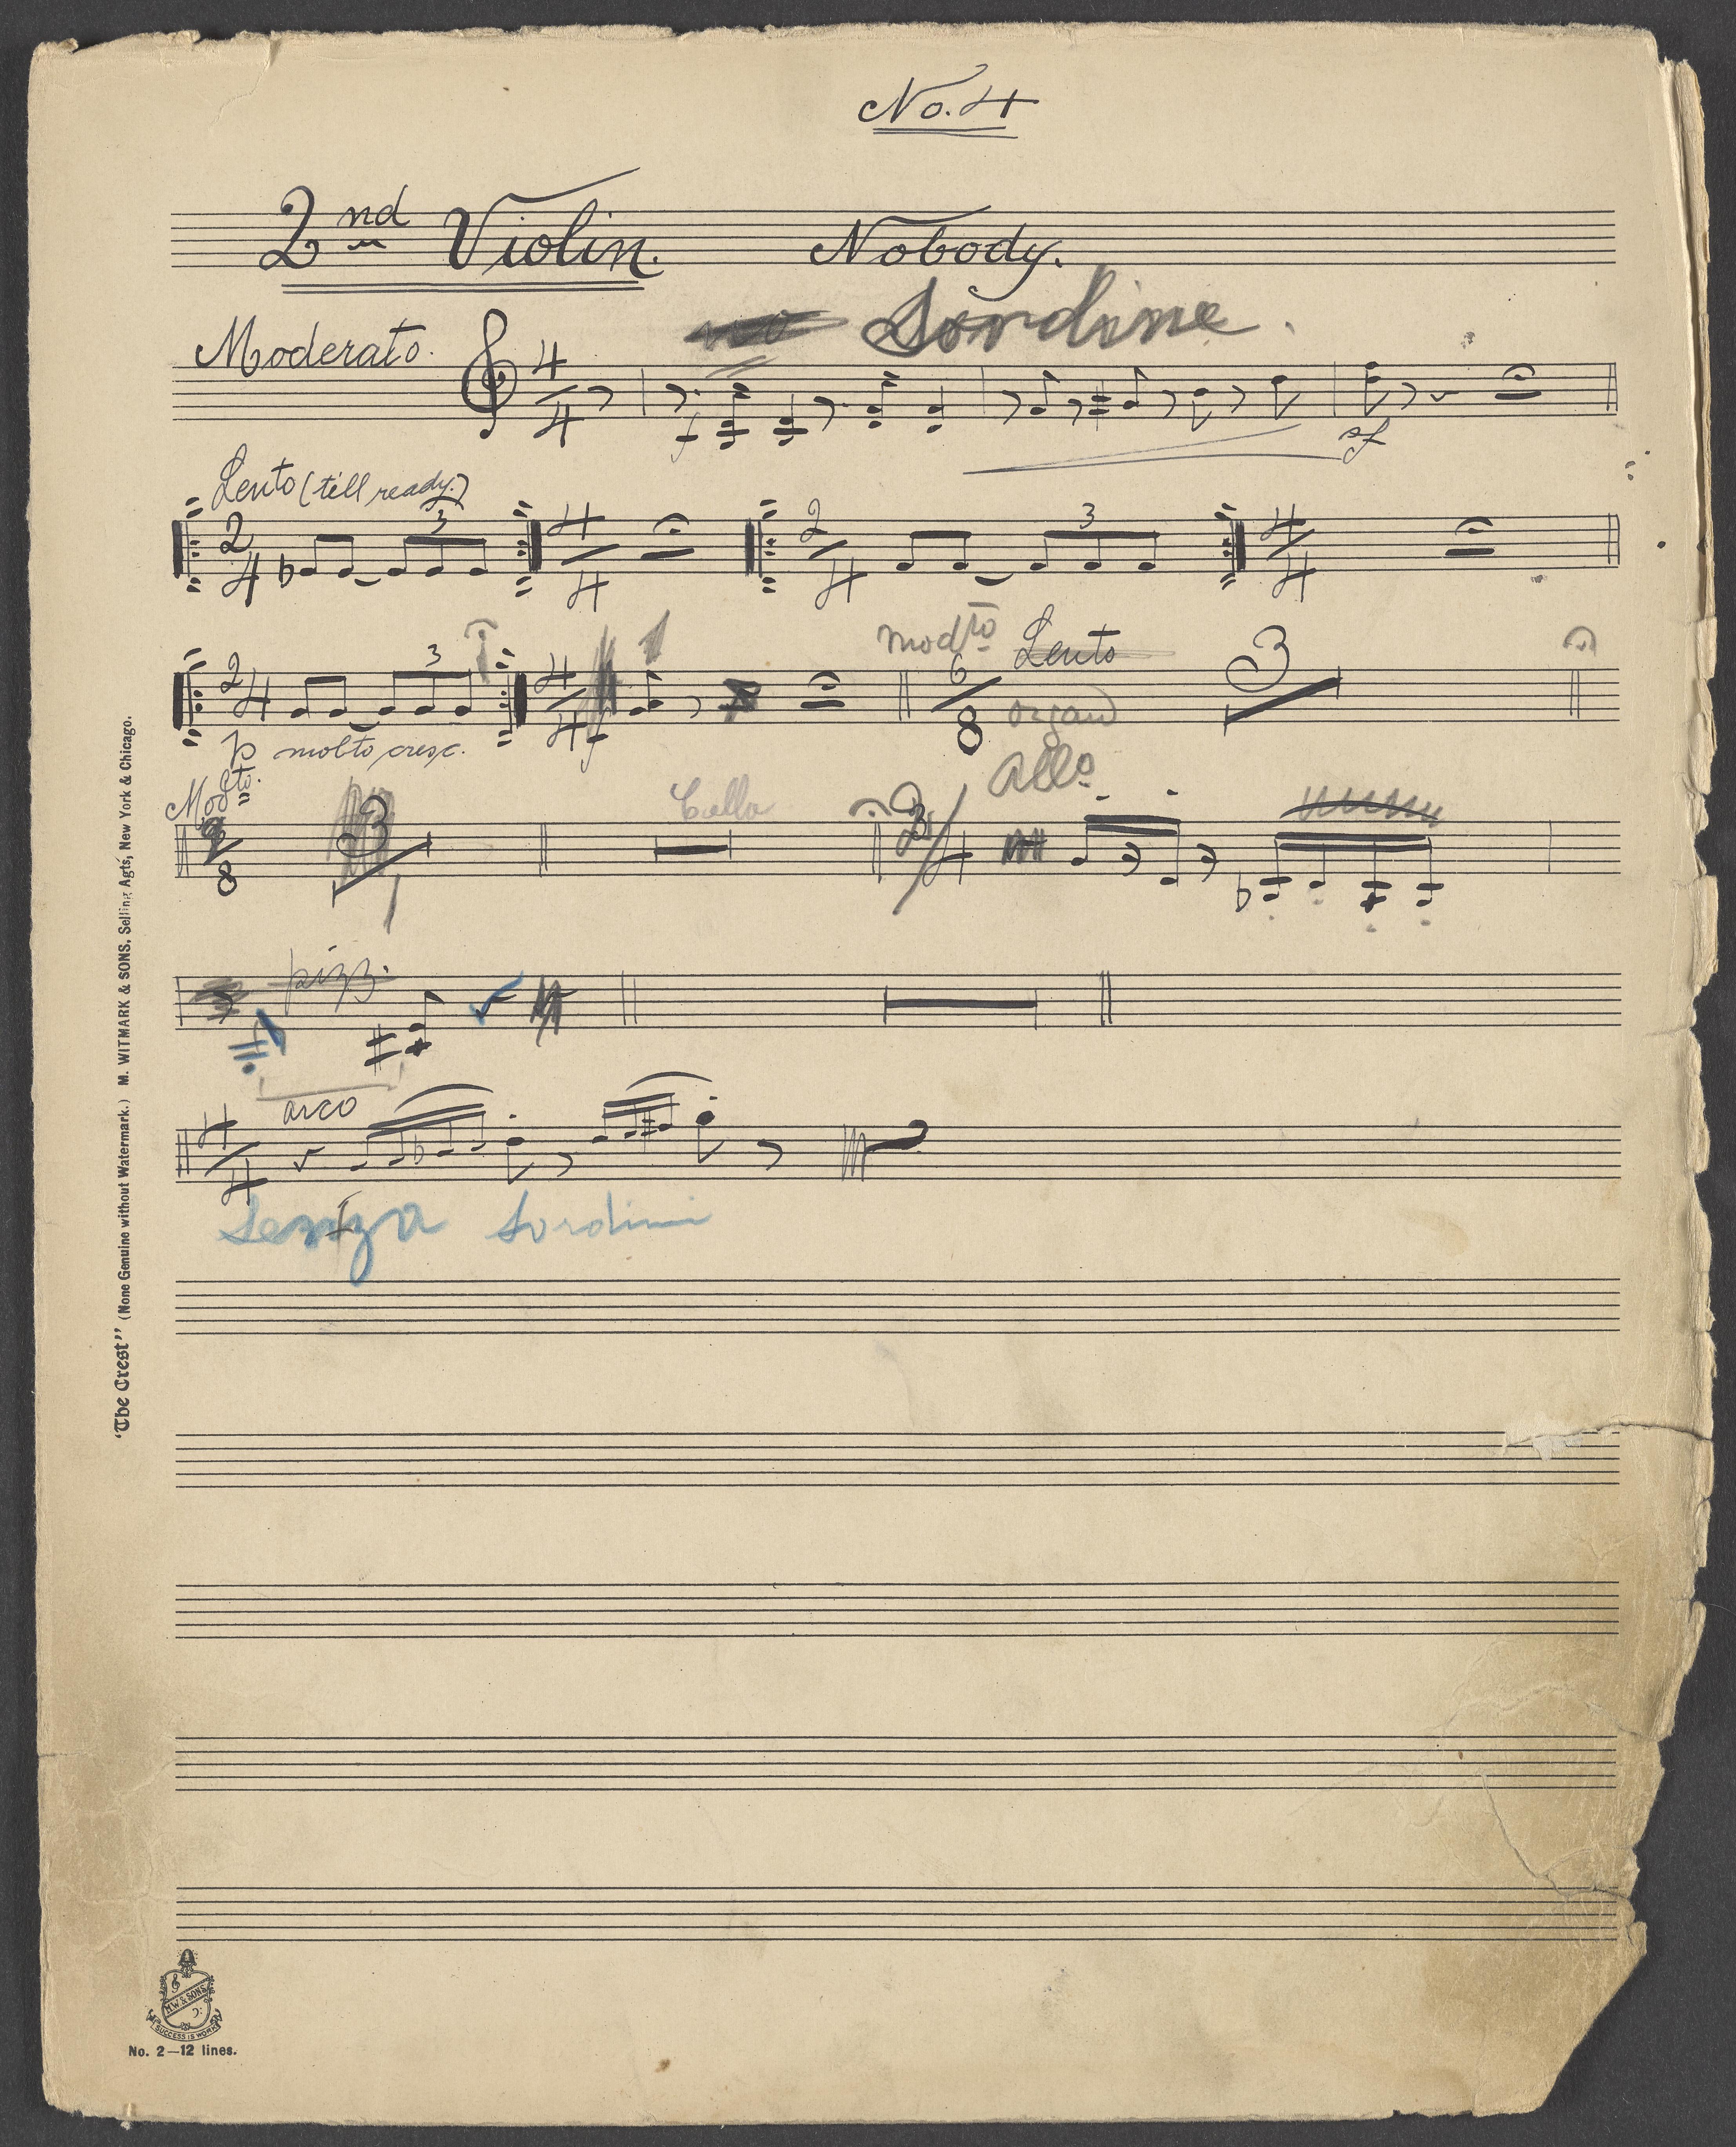 No. 4
2nd Violin. Nobody.
Sordine.
Moderato.
4 4
f sf
Lento (till ready.)
2 4 3 4 4 2 4 3 4 4
modto Lento
2 4 3 4 4 6 8 3
organ
p molto cresc. f
Modto. Allo
8 3 Cello 3 4
pizz.
arco
4 4
Senza Sordini
"The Crest" (None Genuine without Watermark.) M. WITMARK & SONS, Selling Agts, New York & Chicago.
M.W & SONS
SUCCESS IS WORK
No. 2—12 lines.